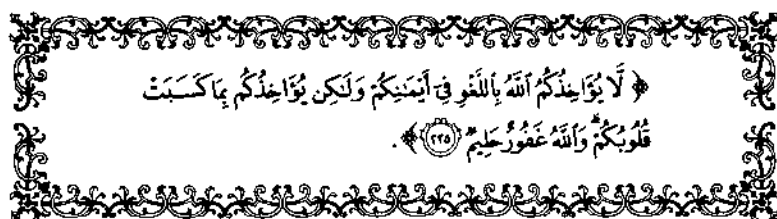 ﴿ لَّا يُؤَاخِذُكُمُ ٱللَّهُ بِٱللَّغْوِ فِىٓ أَيْمَـٰنِكُمْ وَلَـٰكِن يُؤَاخِذُكُم بِمَا كَسَبَتْ
قُلُوبُكُمْ ۗ وَٱللَّهُ غَفُورٌ حَلِيمٌ ٢٢٥ ﴾.